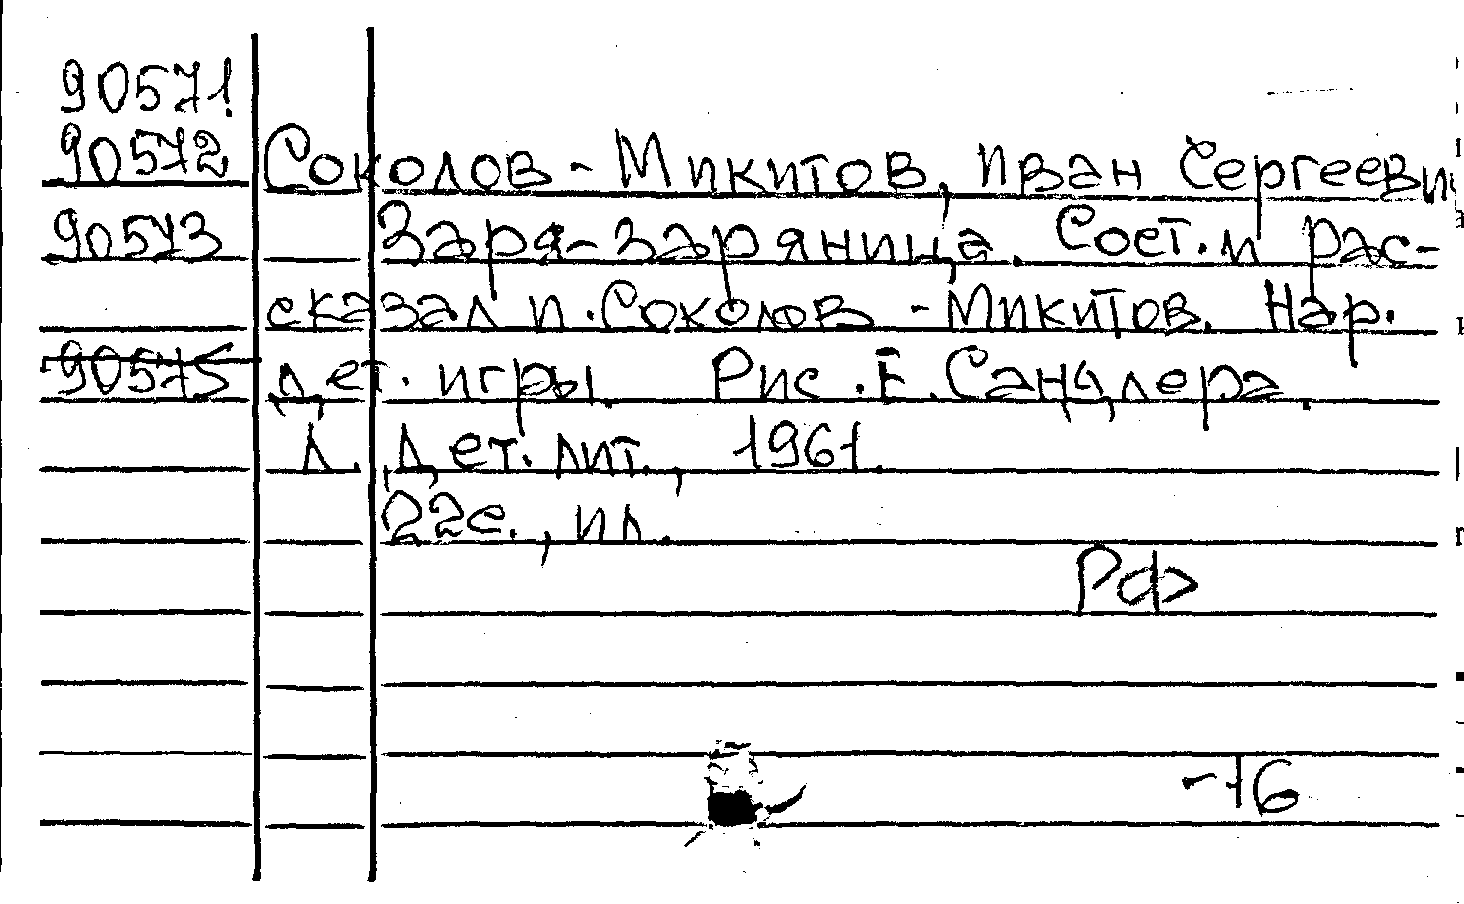 90571
90572 Соколов-Микитов, Иван Сергеевич
90573 Заря-заряница. Сост. и рас-
сказал И. Соколов-Микитов. Нар.
90575 дет. игры. Рис. Е. Сандлера.
Л. Дет. лит., 1961.
22с., ил.
РФ
-16